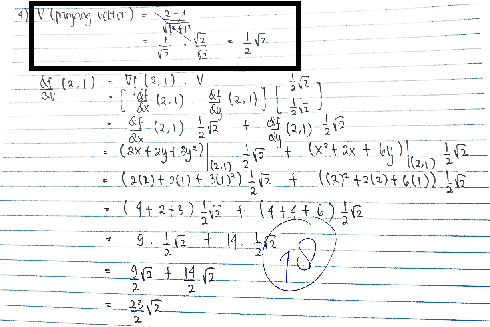 4) V (panjang vektor) = 2-1 / √1²+1²
= 1/√2 · √2/√2 = 1/2 √2
df/dv (2,1) = ∇f (2,1) · V
= [ df/dx (2,1) df/dy (2,1) ] [ 1/2 √2 1/2 √2 ]
= df/dx (2,1) 1/2 √2 + df/dy (2,1) 1/2 √2
= (2x+2y+3y²)|(2,1) 1/2 √2 + (x²+2x+6y)|(2,1) 1/2 √2
= (2(2)+2(1)+3(1)²) 1/2 √2 + ((2)²+2(2)+6(1)) 1/2 √2
= (4+2+3) 1/2 √2 + (4+4+6) 1/2 √2
= 9 · 1/2 √2 + 14 · 1/2 √2
18
= 9/2 √2 + 14/2 √2
= 23/2 √2